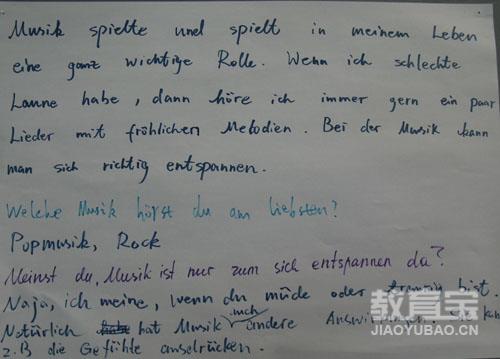 Musik spielte und spielt in meinem Leben
eine ganz wichtige Rolle. Wenn ich schlechte
Laune habe, dann höre ich immer gern ein paar
Lieder mit fröhlichen Melodien. Bei der Musik kann
man sich richtig entspannen.
Welche Musik hörst du am liebsten?
Popmusik, Rock
Meinst du, Musik ist nur zum sich entspannen da?
Naja, ich meine, wenn du müde oder traurig bist.
Natürlich hat Musik auch andere
z.B die Gefühle ausdrücken.
教育宝
JIAOYUBAO.CN